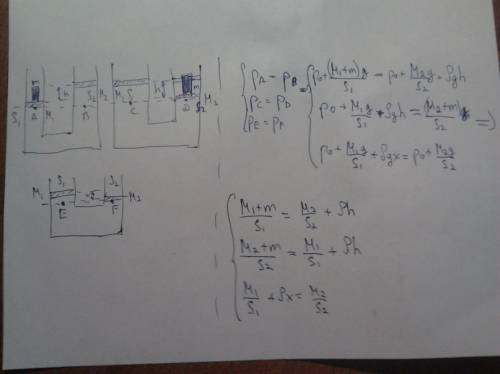 S₁ A M₁ h B S₂ M₂
M₁ S₁ C h D S₂ M₂
M₁ S₁ E x F S₂ M₂
{ p_A = p_B
p_C = p_D
p_E = p_F
=> { p₀ + (M₁+m)g/S₁ = p₀ + M₂g/S₂ + ρgh
p₀ + M₁g/S₁ + ρgh = (M₂+m)g/S₂ =>
p₀ + M₁g/S₁ + ρgx = p₀ + M₂g/S₂
{ M₁+m/S₁ = M₂/S₂ + ρh
M₂+m/S₂ = M₁/S₁ + ρh
M₁/S₁ + ρx = M₂/S₂